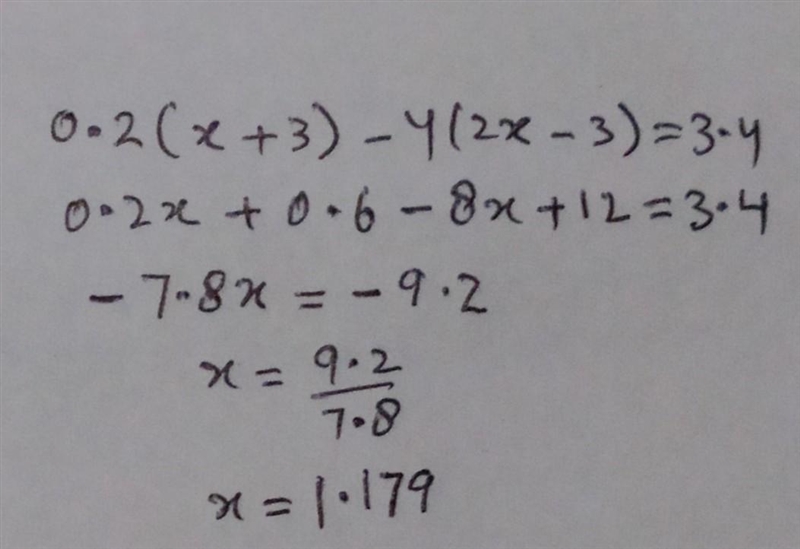 0.2(x + 3) - 4(2x - 3) = 3.4
0.2x + 0.6 - 8x + 12 = 3.4
- 7.8x = - 9.2
x = 9.2/7.8
x = 1.179